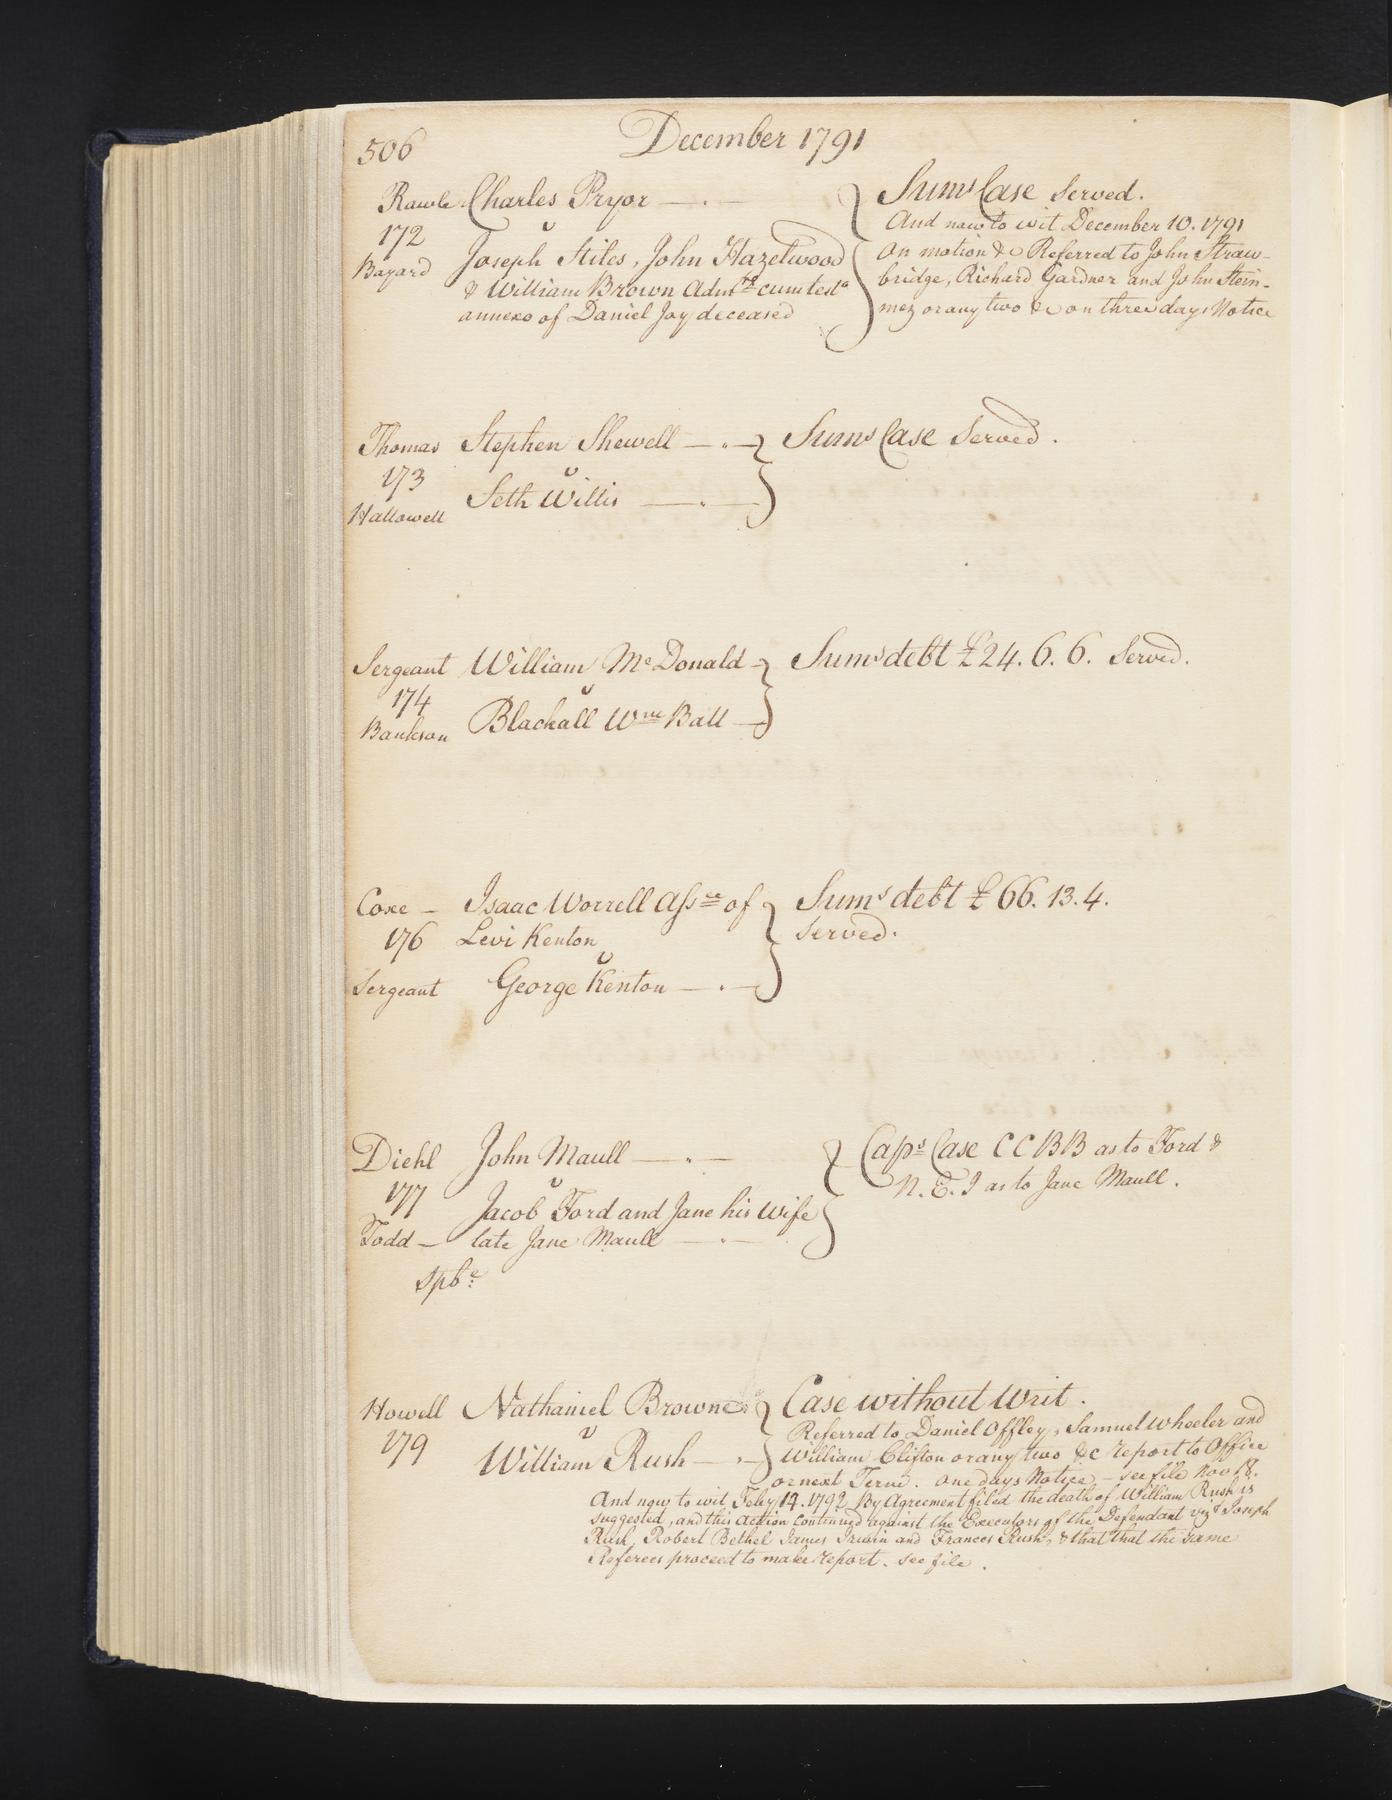 506
December 1791
Rawle Charles Pryor
172 v
Bayard Joseph Stiles, John Hazelwood
& William Brown Admrs cum testo
annexo of Daniel Joy deceased
Sums Case Served.
And now to wit December 10. 1791
On motion &c Referred to John Straw-
bridge, Richard Gardner and John Stein-
mez or any two &c on three days Notice
Thomas Stephen Shewell Sums Case Served.
173 v
Hallowell Seth Willis
Sergeant William McDonald Sums debt £24. 6. 6. Served.
174 v
Bankson Blackall Wm Ball
Coxe Isaac Worrell Assee of Sums debt £66. 13. 4.
176 Levi Kenton served.
v
Sergeant George Kenton
Diehl John Maull Caps Case C C B B as to Ford &
177 v N. E. I as to Jane Maull.
Jacob Ford and Jane his Wife
Todd late Jane Maull
Spbe
Howell Nathaniel Browne Case without Writ.
179 v
William Rush
Referred to Daniel Offley, Samuel Wheeler and
William Clifton or any two &c report to Office
or next Term. one days Notice - see file Nov 18.
And now to wit Feby 14. 1792 By Agreement filed the death of William Rush is
suggested, and this Action continued against the Executors of the Defendant vizt Joseph
Rush, Robert Bethel James Irwin and Frances Rush, & that that the same
Referees proceed to make report. see file.